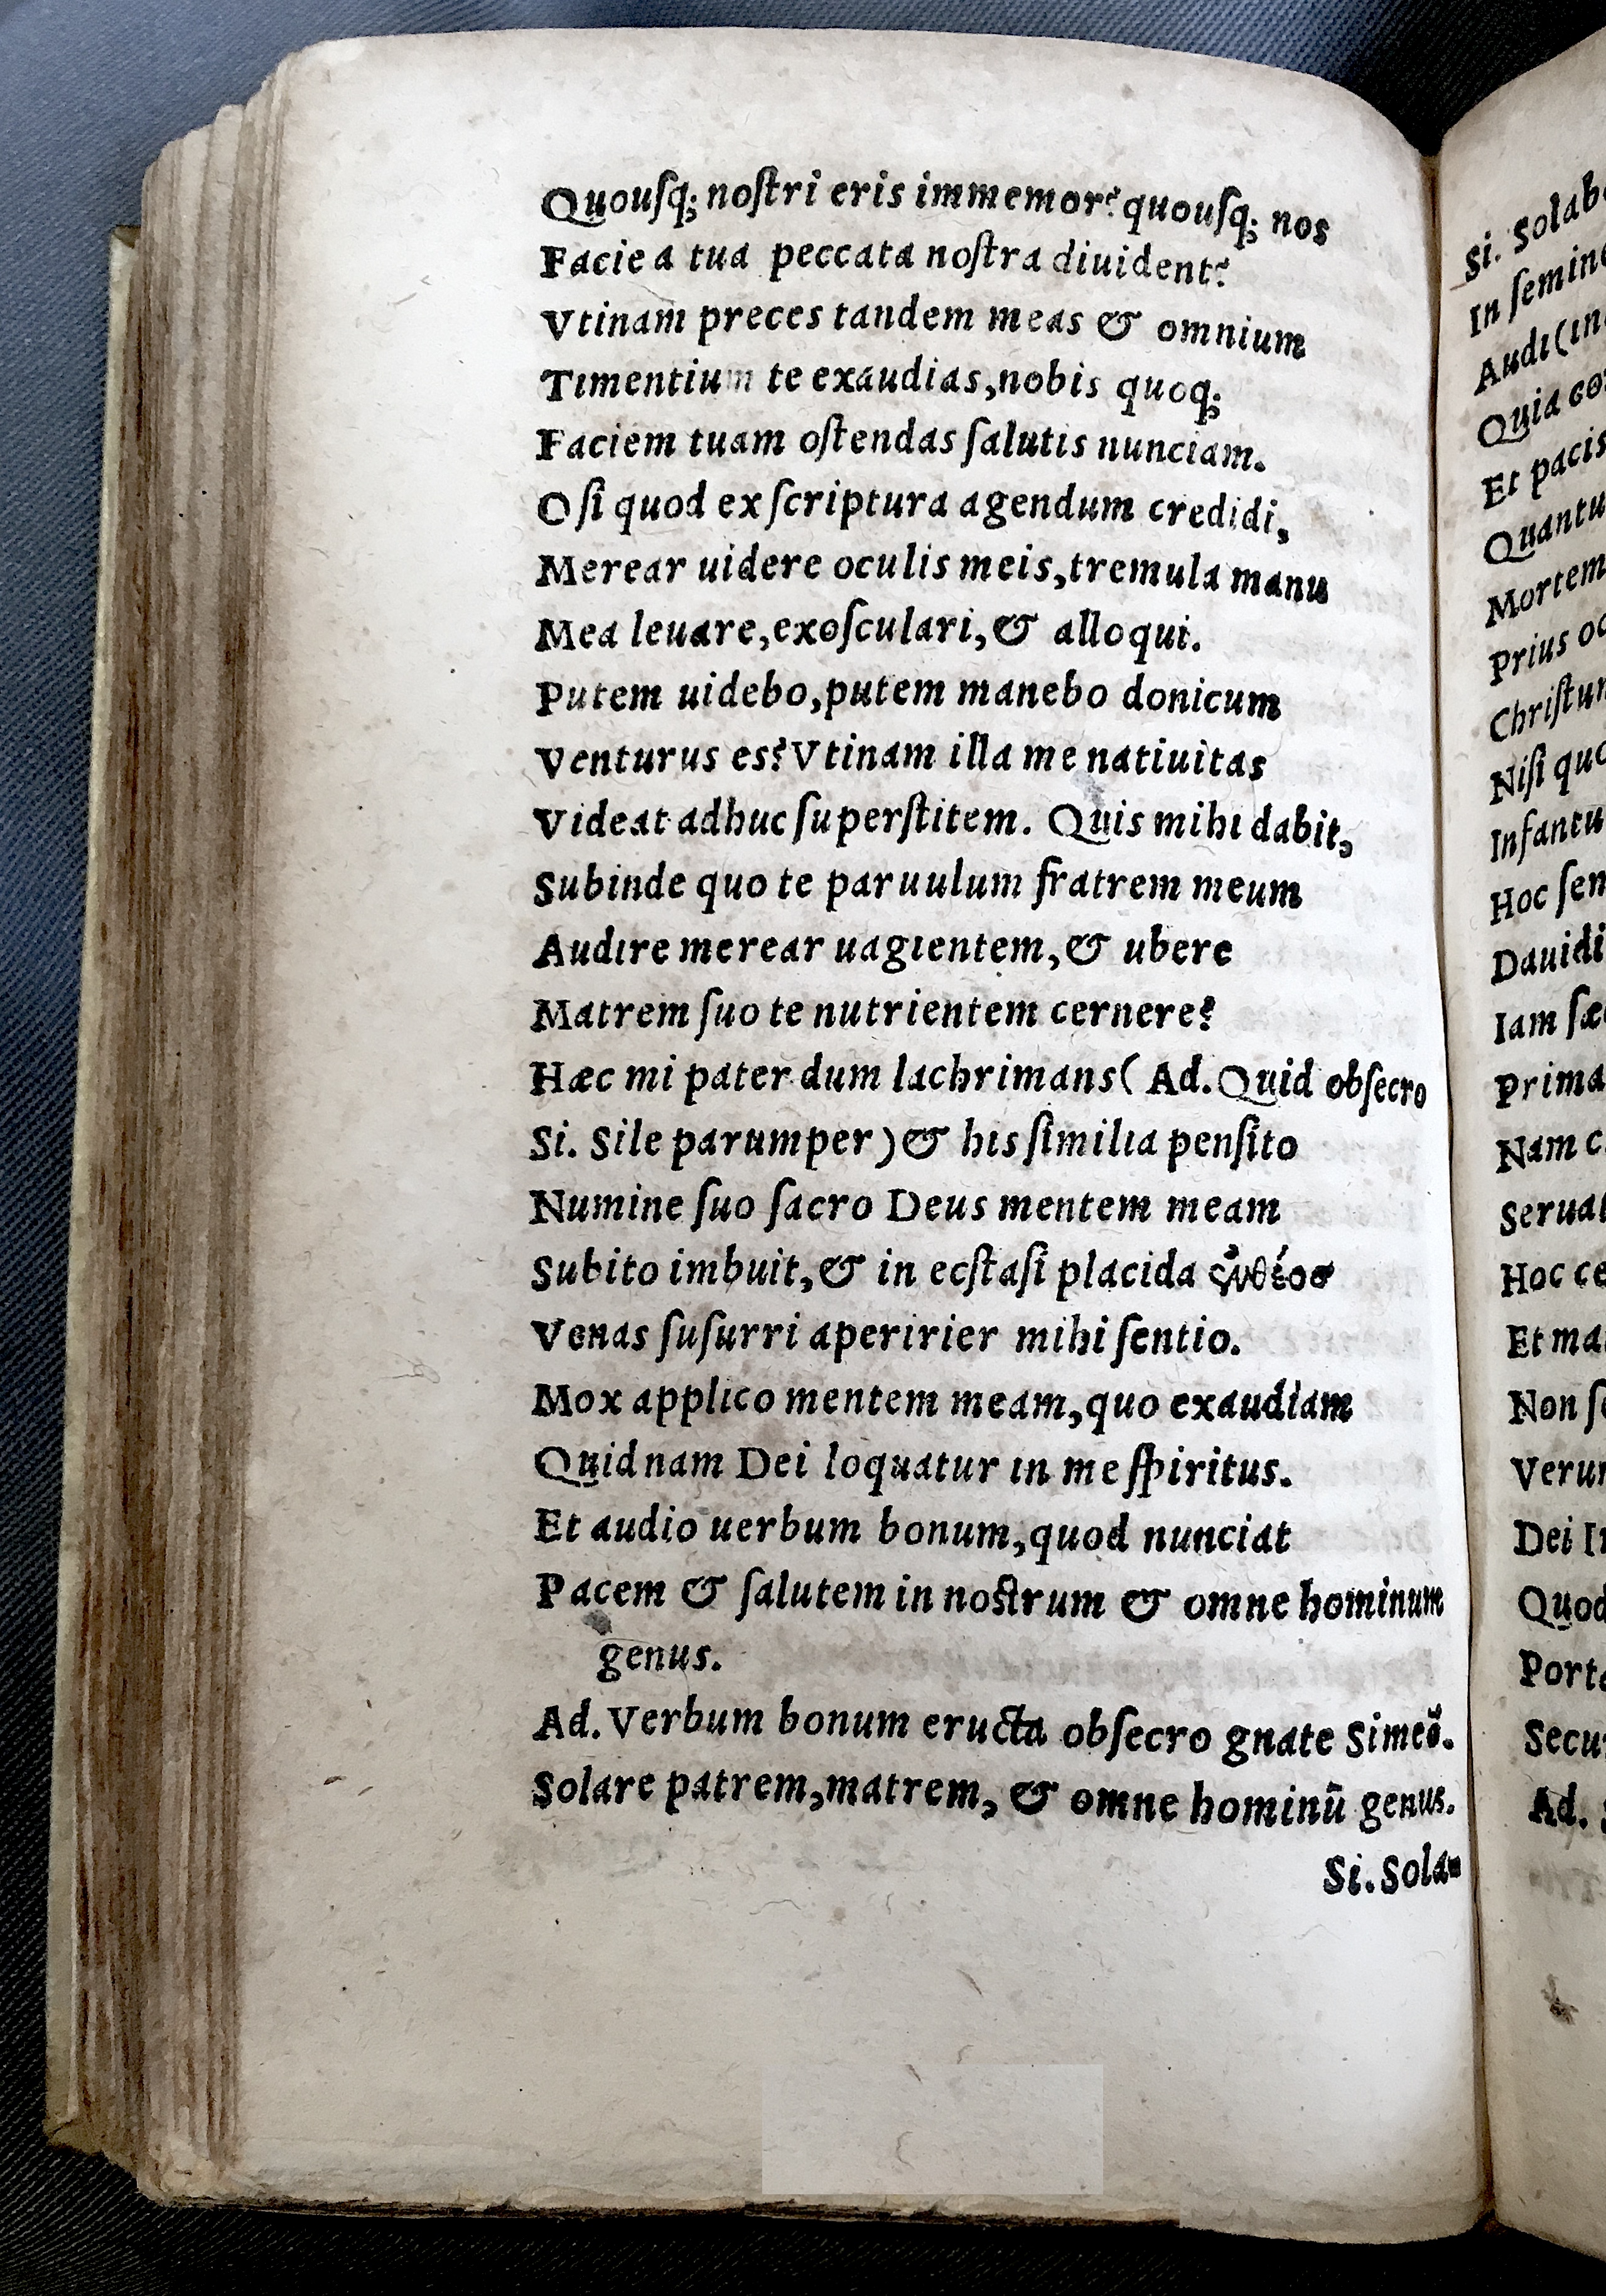 Quouſq; noſtri eris immemor? quouſq; nos
Facie a tua peccata noſtra diuident?
Vtinam preces tandem meas & omnium
Timentium te exaudias, nobis quoq;
Faciem tuam oſtendas ſalutis nunciam.
O ſi quod ex ſcriptura agendum credidi,
Merear uidere oculis meis, tremula manu
Mea leuare, exoſculari, & alloqui.
Putem uidebo, putem manebo donicum
Venturus es? Vtinam illa me natiuitas
Videat adhuc ſuperſtitem. Quis mihi dabit,
Subinde quo te paruulum fratrem meum
Audire merear uagientem, & ubere
Matrem ſuo te nutrientem cernere?
Hæc mi pater dum lachrimans ( Ad. Quid obſecro
Si. Sile parumper ) & his ſimilia penſito
Numine ſuo ſacro Deus mentem meam
Subito imbuit, & in ecſtaſi placida ἔνθεοσ
Venas ſuſurri aperirier mihi ſentio.
Mox applico mentem meam, quo exaudiam
Quidnam Dei loquatur in me ſpiritus.
Et audio uerbum bonum, quod nunciat
Pacem & ſalutem in noſtrum & omne hominum
genus.
Ad. Verbum bonum eructa obſecro gnate Simeō.
Solare patrem, matrem, & omne hominū genus.
Si. Sola-
Si. Solab
In ſemine
Audi (in
Quia co
Et pacis
Quantu
Mortem
Prius oc
Chriſtum
Niſi quo
Infantu
Hoc ſem
Dauidi
Iam ſæ
Prima
Nam c
Seruat
Hoc ce
Et ma
Non ſe
Verum
Dei I
Quod
Porte
Secu
Ad.